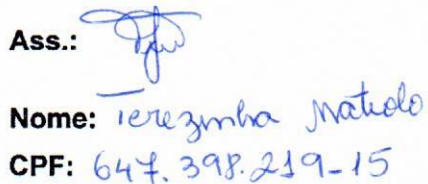 Ass.:
Nome: Terezinha Matiolo
CPF: 647.398.219-15